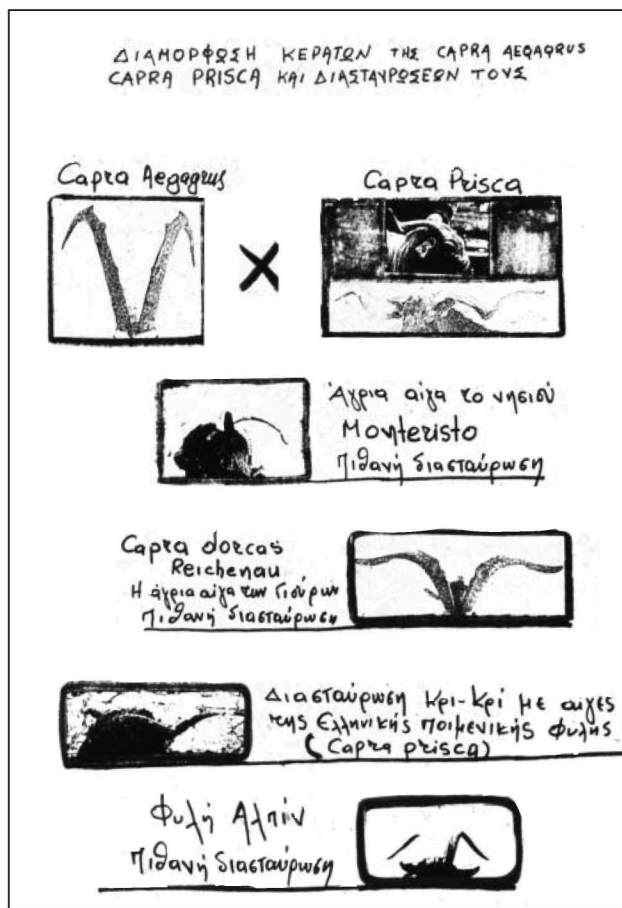 ΔΙΑΜΟΡΦΩΣΗ ΚΕΡΑΤΩΝ ΤΗΣ CAPRA AEGAGRUS
CAPRA PRISCA ΚΑΙ ΔΙΑΣΤΑΥΡΩΣΕΩΝ ΤΟΥΣ
Capra Aegagrus
Capra Prisca
X
Άγρια αίγα το νησιού
Monteristo
Πιθανή διασταύρωση
Capra dorcas
Reichenau
Η άγρια αίγα των Γιούρων
Πιθανή διασταύρωση
Διασταύρωση Κρι-Κρί με αίγες
της Ελληνικής ποιμενικής Φυλής
(Capra prisca)
Φυλή Αλπίν
Πιθανή διασταύρωση